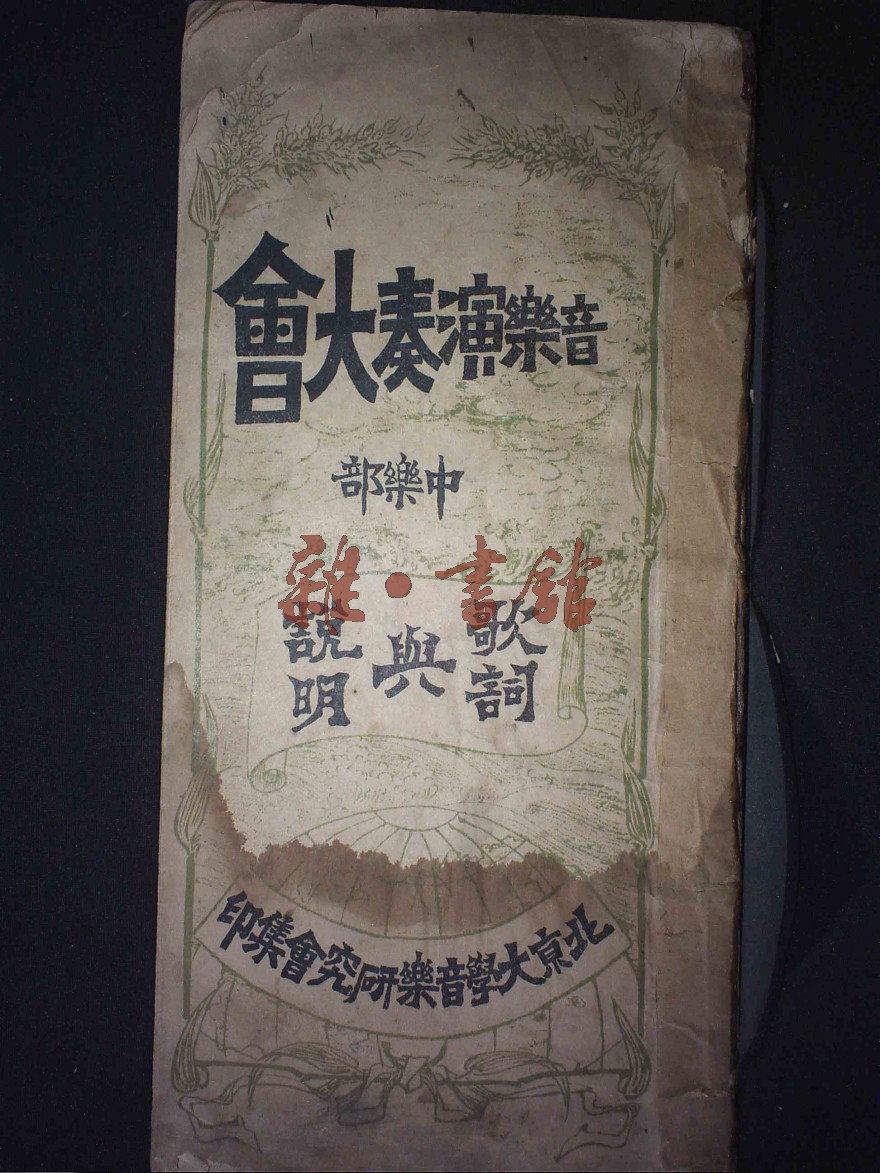 音樂演奏大會
中樂部
雜·書館
歌詞
與
說明
北京大學音樂研究會集印